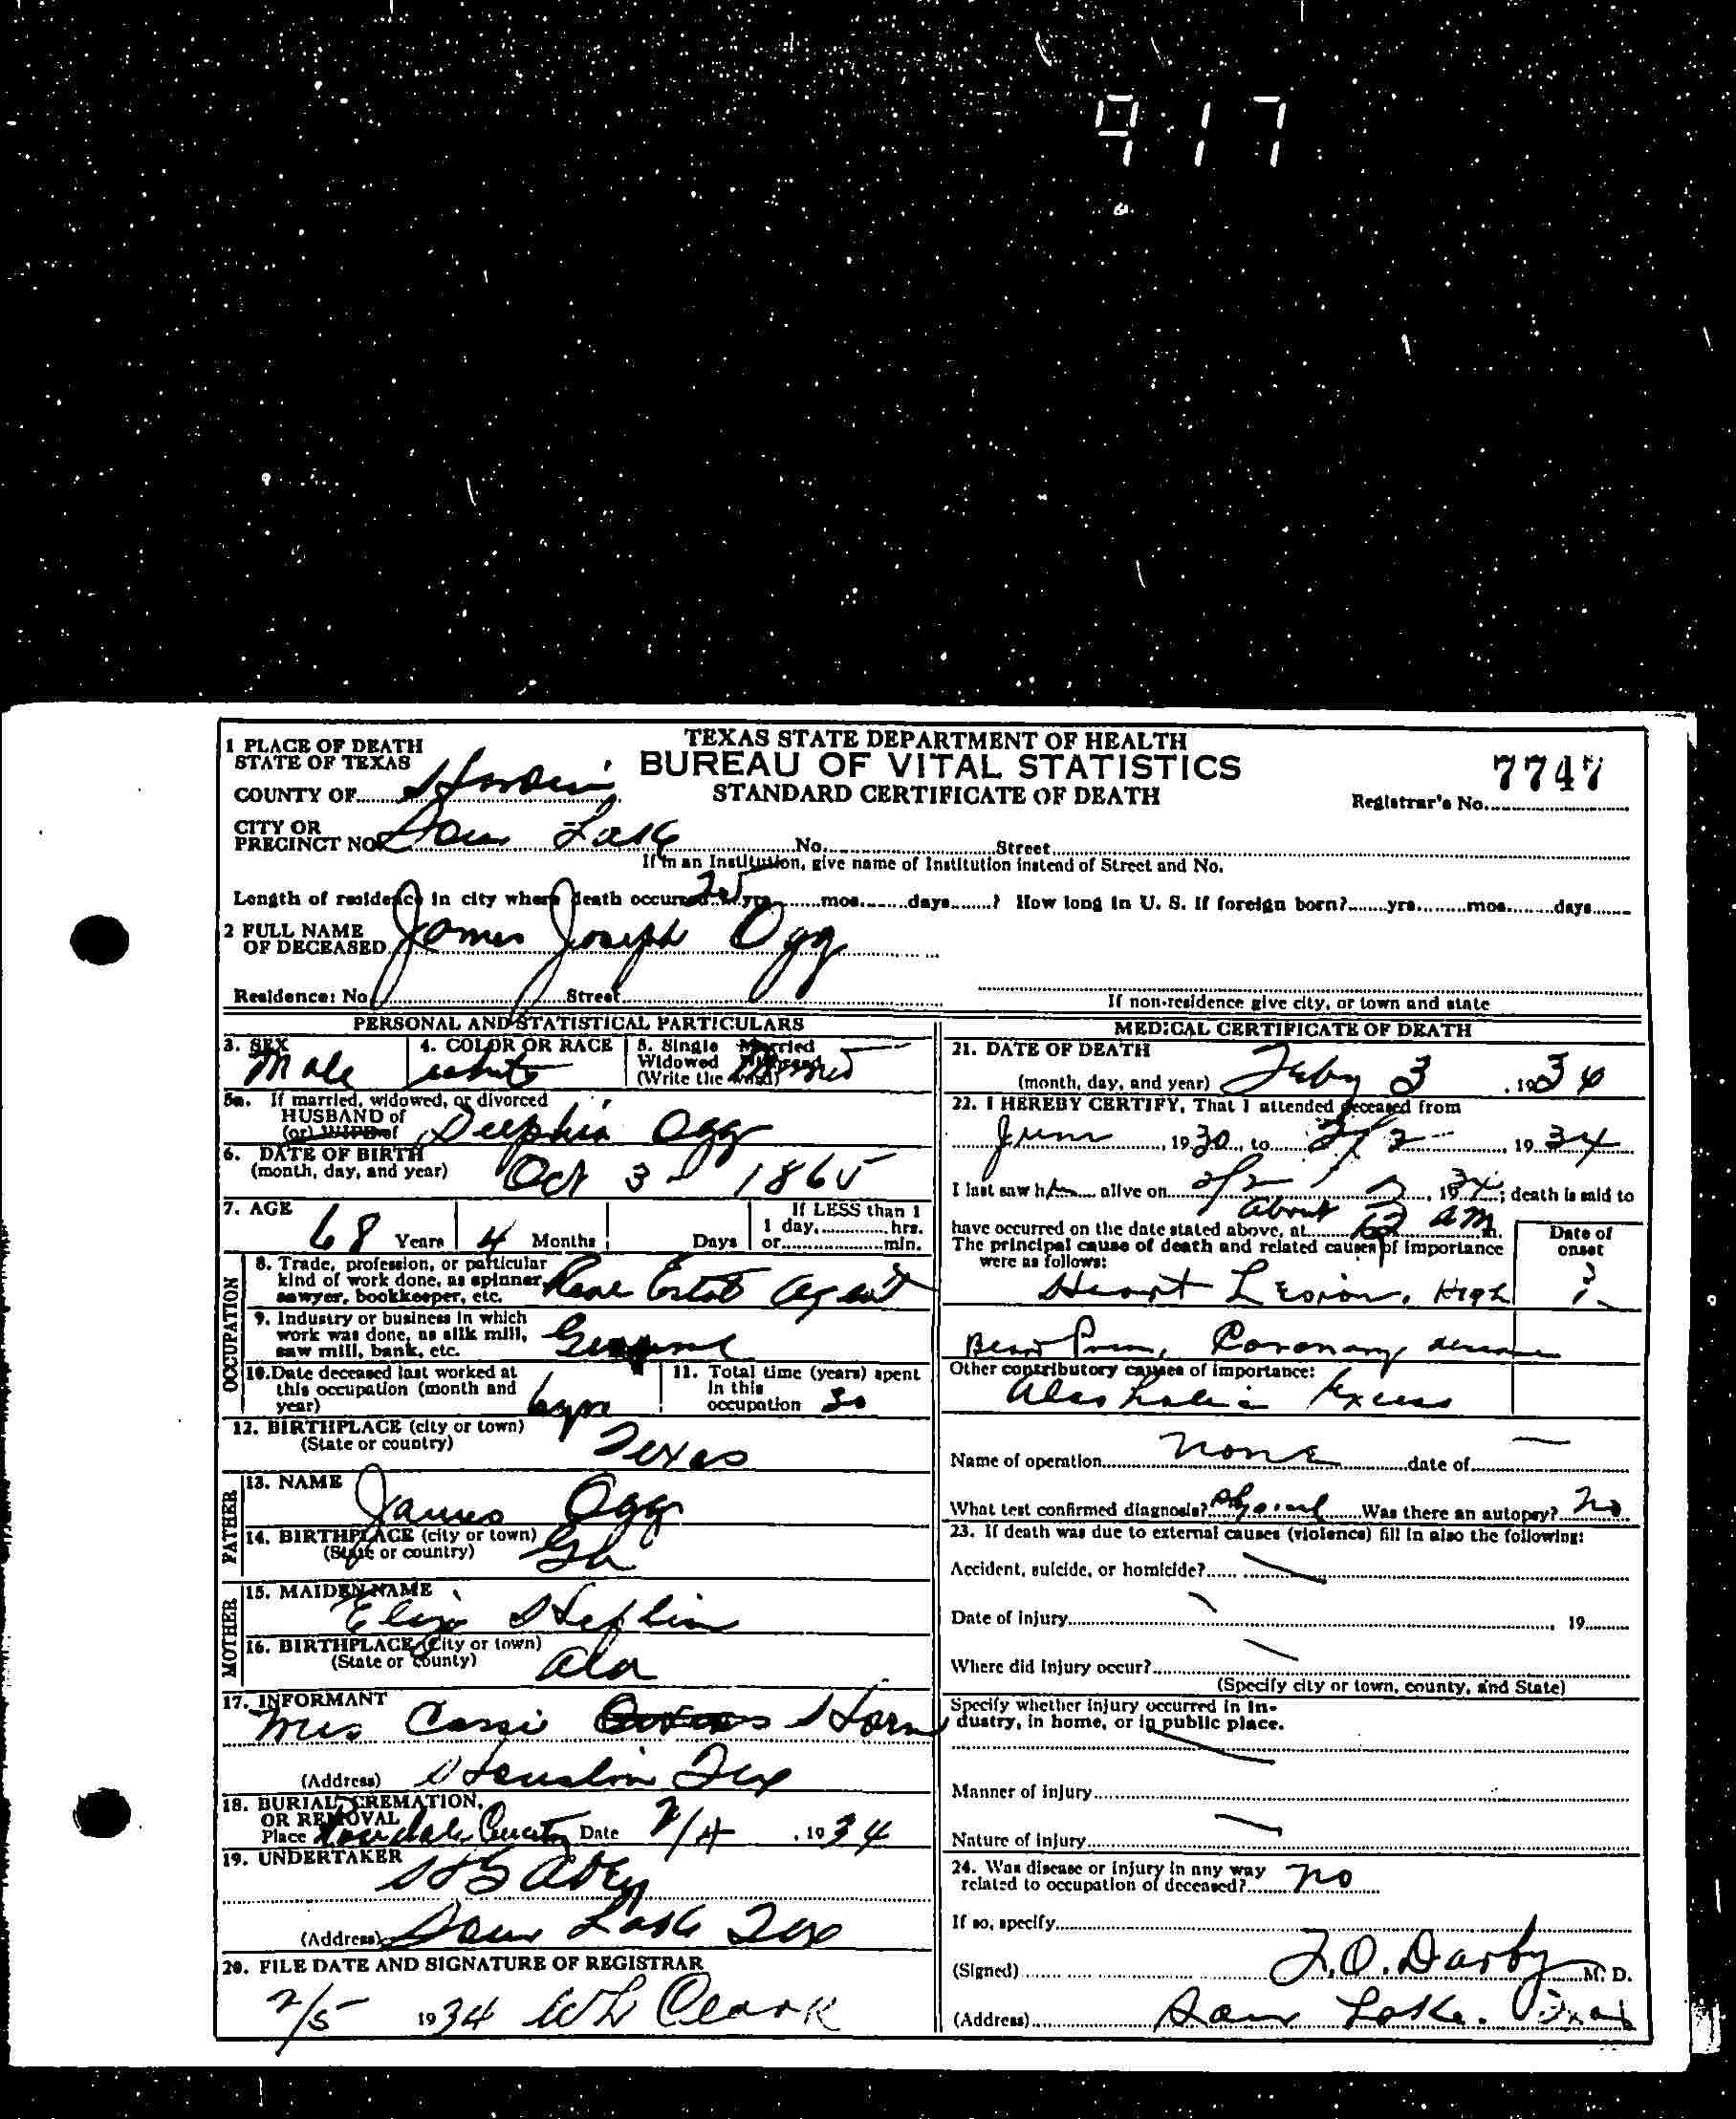 917
TEXAS STATE DEPARTMENT OF HEALTH
BUREAU OF VITAL STATISTICS
STANDARD CERTIFICATE OF DEATH
7747
Registrar's No.
1 PLACE OF DEATH
STATE OF TEXAS
COUNTY OF Hardin
CITY OR
PRECINCT NO. Sour Lake No. Street
If in an Institution, give name of Institution instead of Street and No.
Length of residence in city where death occurred 25 yrs. mos. days ? How long in U. S. if foreign born? yrs. mos. days
2 FULL NAME
OF DECEASED James Joseph Ogg
Residence: No. Street
If non-residence give city, or town and state
PERSONAL AND STATISTICAL PARTICULARS
3. SEX Male
4. COLOR OR RACE white
5. Single Married
Widowed
(Write the word) Married
5a. If married, widowed, or divorced
HUSBAND of
(or) WIFE of Delphia Ogg
6. DATE OF BIRTH
(month, day, and year) Oct 3 - 1865
7. AGE 68 Years 4 Months Days
If LESS than 1
1 day, hrs.
or min.
OCCUPATION
8. Trade, profession, or particular
kind of work done, as spinner,
sawyer, bookkeeper, etc. Real Estate Agent
9. Industry or business in which
work was done, as silk mill,
saw mill, bank, etc.
10. Date deceased last worked at
this occupation (month and
year)
11. Total time (years) spent
in this
occupation 30
12. BIRTHPLACE (city or town)
(State or country) Texas
FATHER
13. NAME James Ogg
14. BIRTHPLACE (city or town)
(State or country) Ga
MOTHER
15. MAIDEN NAME Eliza
16. BIRTHPLACE (City or town)
(State or county) Ala
17. INFORMANT
Mrs Cassie Horn
(Address) Houston Tex
18. BURIAL, CREMATION,
OR REMOVAL
Place Date 2/4, 1934
19. UNDERTAKER
(Address) Sour Lake Tex
20. FILE DATE AND SIGNATURE OF REGISTRAR
2/5 1934 WL Clark
MEDICAL CERTIFICATE OF DEATH
21. DATE OF DEATH
(month, day, and year) Feby 3, 1934
22. I HEREBY CERTIFY, That I attended deceased from
June, 1930, to 2/2, 1934
I last saw him alive on 2/2, 1934; death is said to
have occurred on the date stated above, at About 12 AM m.
The principal cause of death and related causes of importance
were as follows:
Date of
onset
Heart Lesion, High ?
Blood Press, Coronary disease
Other contributory causes of importance:
Alcoholic Excess
Name of operation none date of —
What test confirmed diagnosis? Physical Was there an autopsy? No
23. If death was due to external causes (violence) fill in also the following:
Accident, suicide, or homicide?
Date of injury , 19
Where did injury occur?
(Specify city or town, county, and State)
Specify whether injury occurred in in-
dustry, in home, or in public place.
Manner of injury
Nature of injury
24. Was disease or injury in any way
related to occupation of deceased? no
If so, specify
(Signed) T.O. Darby M. D.
(Address) Sour Lake. Texas